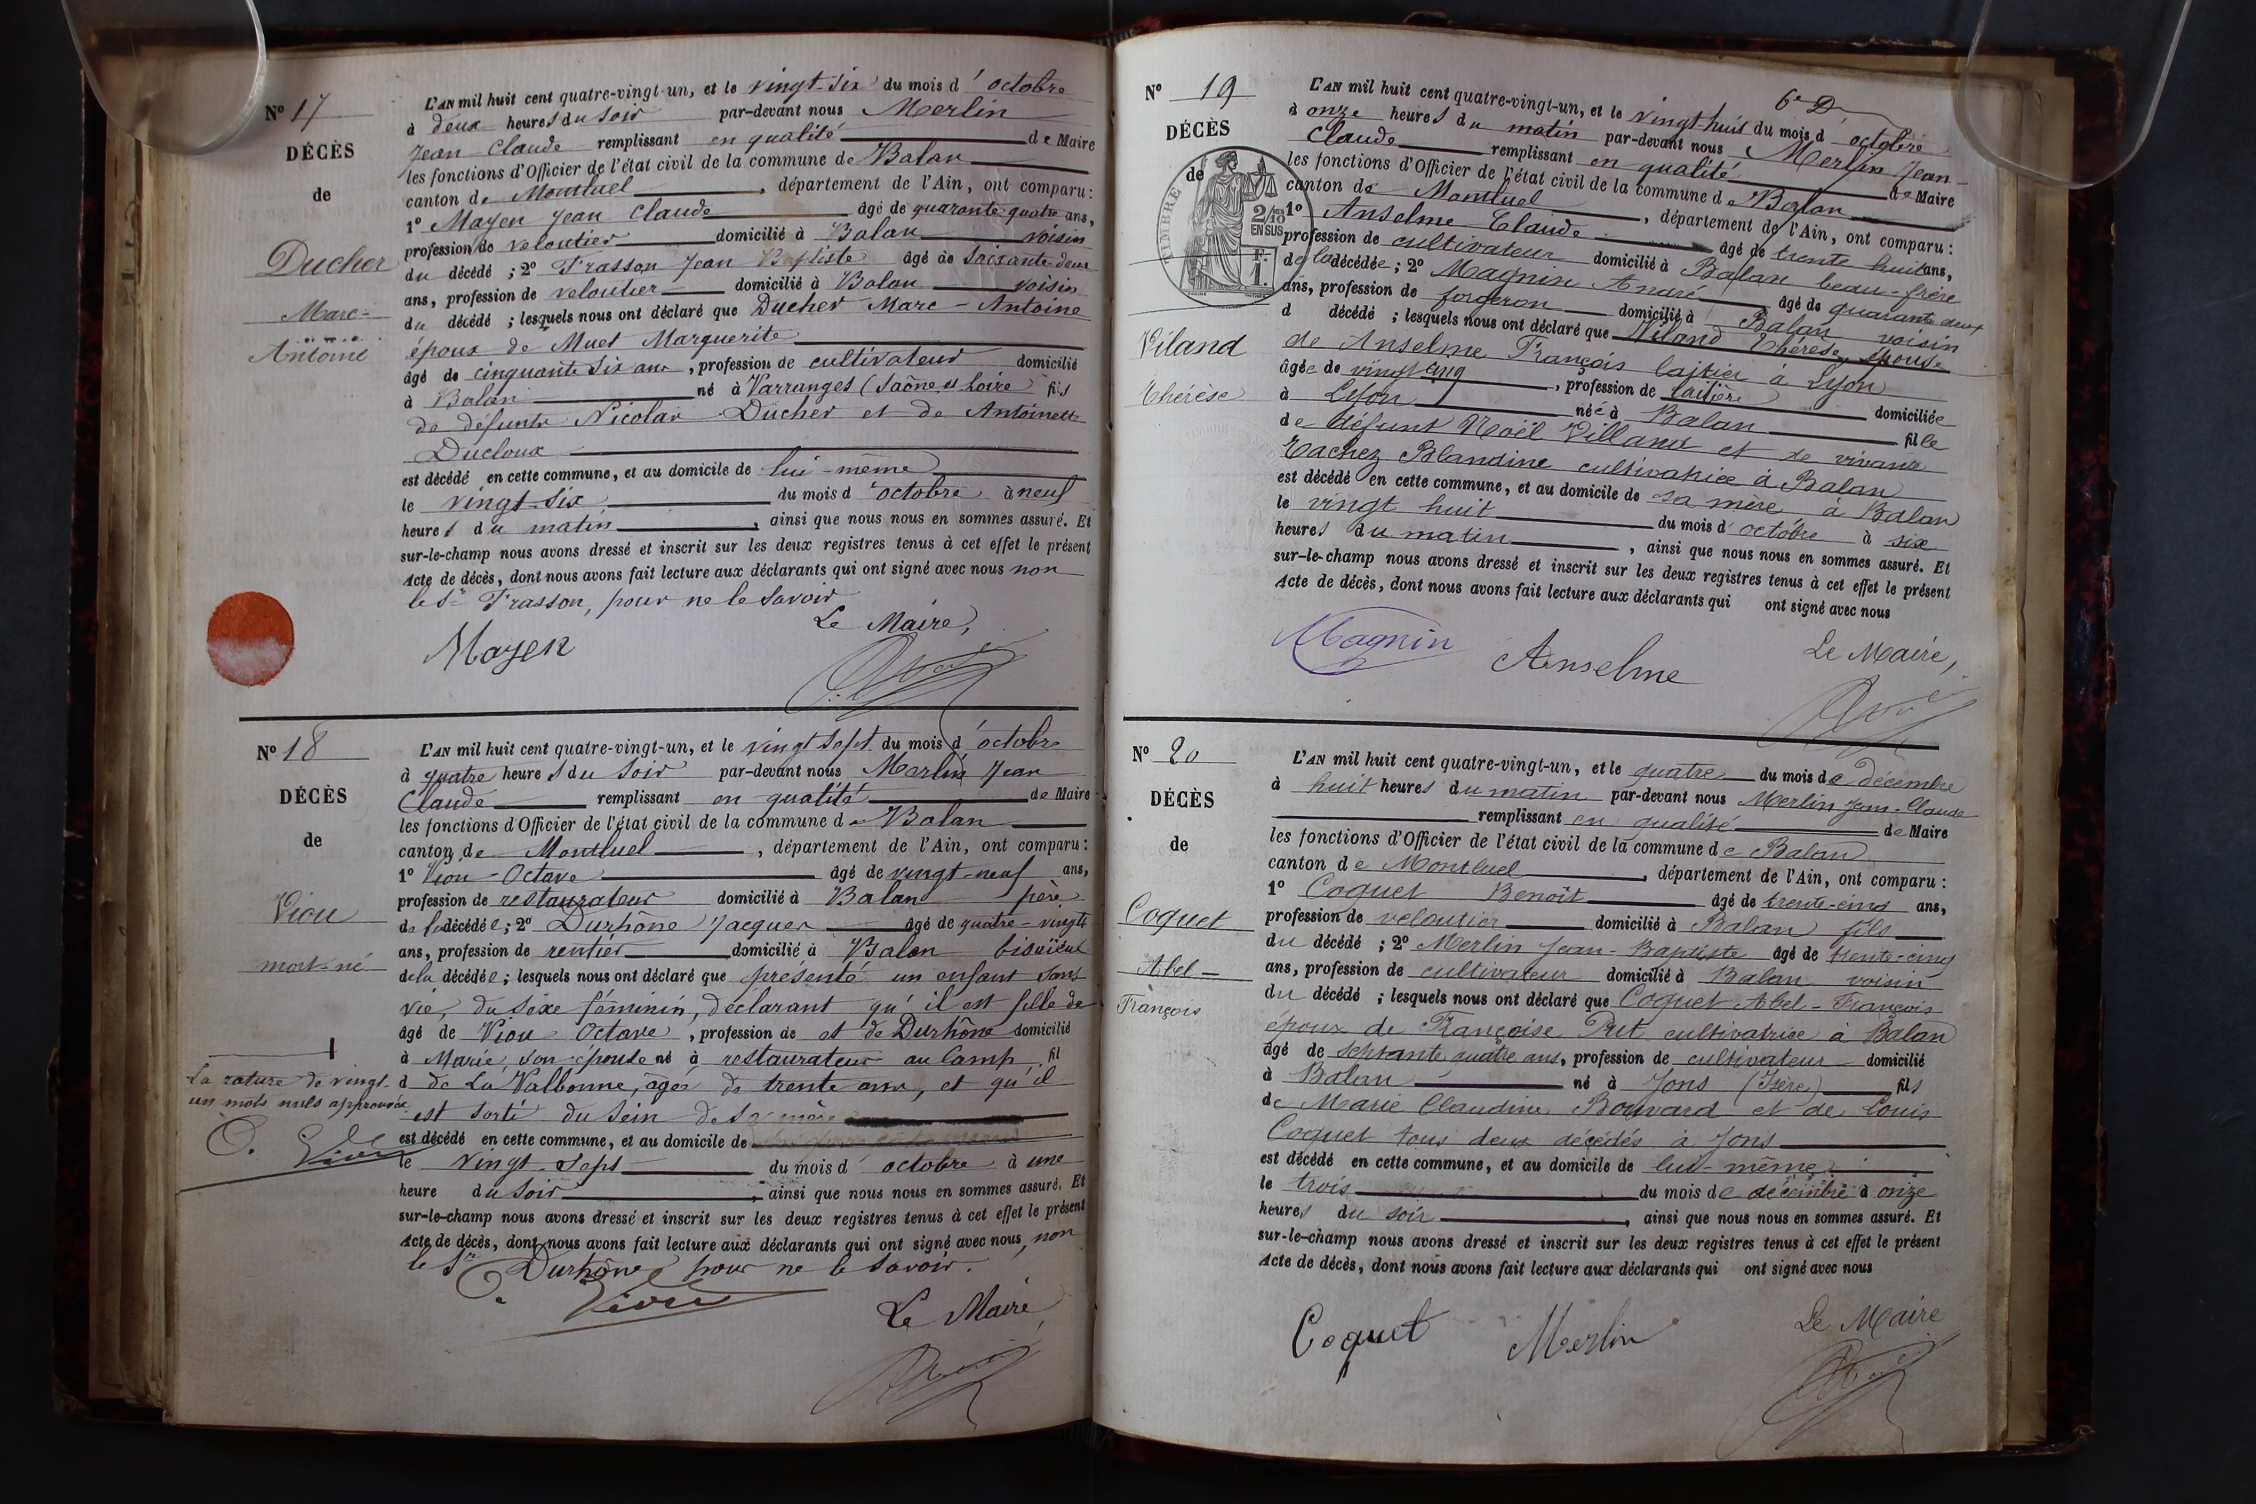 N° 17
DÉCÈS
de
Ducher
Marc-
Antoine
L'AN mil huit cent quatre-vingt-un, et le vingt-six du mois d'octobre
à deux heures du soir par-devant nous Merlin
Jean Claude remplissant en qualité de Maire
les fonctions d'Officier de l'état civil de la commune de Balan
canton de Montluel, département de l'Ain, ont comparu :
1° Mayen Jean Claude âgé de quarante-quatre ans,
profession de veloutier domicilié à Balan voisin
du décédé ; 2° Frasson Jean Baptiste âgé de soixante-deux
ans, profession de veloutier domicilié à Balan voisin
du décédé ; lesquels nous ont déclaré que Ducher Marc-Antoine
époux de Muet Marguerite
âgé de cinquante six ans, profession de cultivateur domicilié
à Balan né à Varranges (Saône et Loire) fils
de défunts Nicolas Ducher et de Antoinette
Ducloux
est décédé en cette commune, et au domicile de lui-même
le vingt-six du mois d'octobre à neuf
heures du matin, ainsi que nous nous en sommes assuré. Et
sur-le-champ nous avons dressé et inscrit sur les deux registres tenus à cet effet le présent
Acte de décès, dont nous avons fait lecture aux déclarants qui ont signé avec nous non
le Sr Frasson, pour ne le savoir
Le Maire,
Mayen
N° 18
DÉCÈS
de
Viou
mort-né
La rature de vingt-
un mots nuls approuvée
O. Viou
L'AN mil huit cent quatre-vingt-un, et le vingt sept du mois d'octobre
à quatre heures du soir par-devant nous Merlin Jean
Claude remplissant en qualité de Maire
les fonctions d'Officier de l'état civil de la commune de Balan
canton de Montluel, département de l'Ain, ont comparu :
1° Viou Octave âgé de vingt-neuf ans,
profession de restaurateur domicilié à Balan père
de la décédée ; 2° Durhône Jacques âgé de quatre-vingts
ans, profession de rentier domicilié à Balan bisaïeul
de la décédée ; lesquels nous ont déclaré que présenté un enfant sans
vie, du sexe féminin, déclarant qu'il est fille de
âgé de Viou Octave, profession de et de Durhône domicilié
à Marie, son épouse né à restaurateur au Camp fil
d de La Valbonne, âgés de trente ans, et qu'il
est sorti du sein de sa mère
est décédé en cette commune, et au domicile de
le vingt-sept du mois d'octobre à une
heure du soir, ainsi que nous nous en sommes assuré. Et
sur-le-champ nous avons dressé et inscrit sur les deux registres tenus à cet effet le présent
Acte de décès, dont nous avons fait lecture aux déclarants qui ont signé avec nous, non
le Sr Durhône pour ne le savoir.
O. Viou
Le Maire
N° 19
DÉCÈS
de
TIMBRE
2/10
EN SUS
F.
1.
Viland
Thérèse
6e D
L'AN mil huit cent quatre-vingt-un, et le vingt-huit du mois d'octobre
à onze heures du matin par-devant nous Merlin Jean-
Claude remplissant en qualité de Maire
les fonctions d'Officier de l'état civil de la commune de Balan
canton de Montluel, département de l'Ain, ont comparu :
1° Anselme Claude âgé de trente huit ans,
profession de cultivateur domicilié à Balan beau-frère
de la décédée ; 2° Magnin André âgé de quarante deux
ans, profession de forgeron domicilié à Balan voisin
d décédé ; lesquels nous ont déclaré que Viland Thérèse, épouse
de Anselme François laitier à Lyon
âgée de vingt cinq, profession de laitière domiciliée
à Lyon née à Balan fille
de défunt Noël Villand et de vivante
Rachez Blandine cultivatrice à Balan
est décédé en cette commune, et au domicile de sa mère à Balan
le vingt huit du mois d'octobre à six
heures du matin, ainsi que nous nous en sommes assuré. Et
sur-le-champ nous avons dressé et inscrit sur les deux registres tenus à cet effet le présent
Acte de décès, dont nous avons fait lecture aux déclarants qui ont signé avec nous
Magnin Anselme Le Maire,
N° 20
DÉCÈS
de
Coquet
Abel-
François
L'AN mil huit cent quatre-vingt-un, et le quatre du mois de décembre
à huit heures du matin par-devant nous Merlin Jean-Claude
remplissant en qualité de Maire
les fonctions d'Officier de l'état civil de la commune de Balan
canton de Montluel, département de l'Ain, ont comparu :
1° Coquet Benoît âgé de trente-cinq ans,
profession de veloutier domicilié à Balan fils
du décédé ; 2° Merlin Jean-Baptiste âgé de trente-cinq
ans, profession de cultivateur domicilié à Balan voisin
du décédé ; lesquels nous ont déclaré que Coquet Abel-François
époux de Françoise Put cultivatrice à Balan
âgé de septante quatre ans, profession de cultivateur domicilié
à Balan né à Jons (Isère) fils
de Marie Claudine Bouvard et de Louis
Coquet tous deux décédés à Jons
est décédé en cette commune, et au domicile de lui-même
le trois du mois de décembre à onze
heures du soir, ainsi que nous nous en sommes assuré. Et
sur-le-champ nous avons dressé et inscrit sur les deux registres tenus à cet effet le présent
Acte de décès, dont nous avons fait lecture aux déclarants qui ont signé avec nous
Coquet Merlin Le Maire